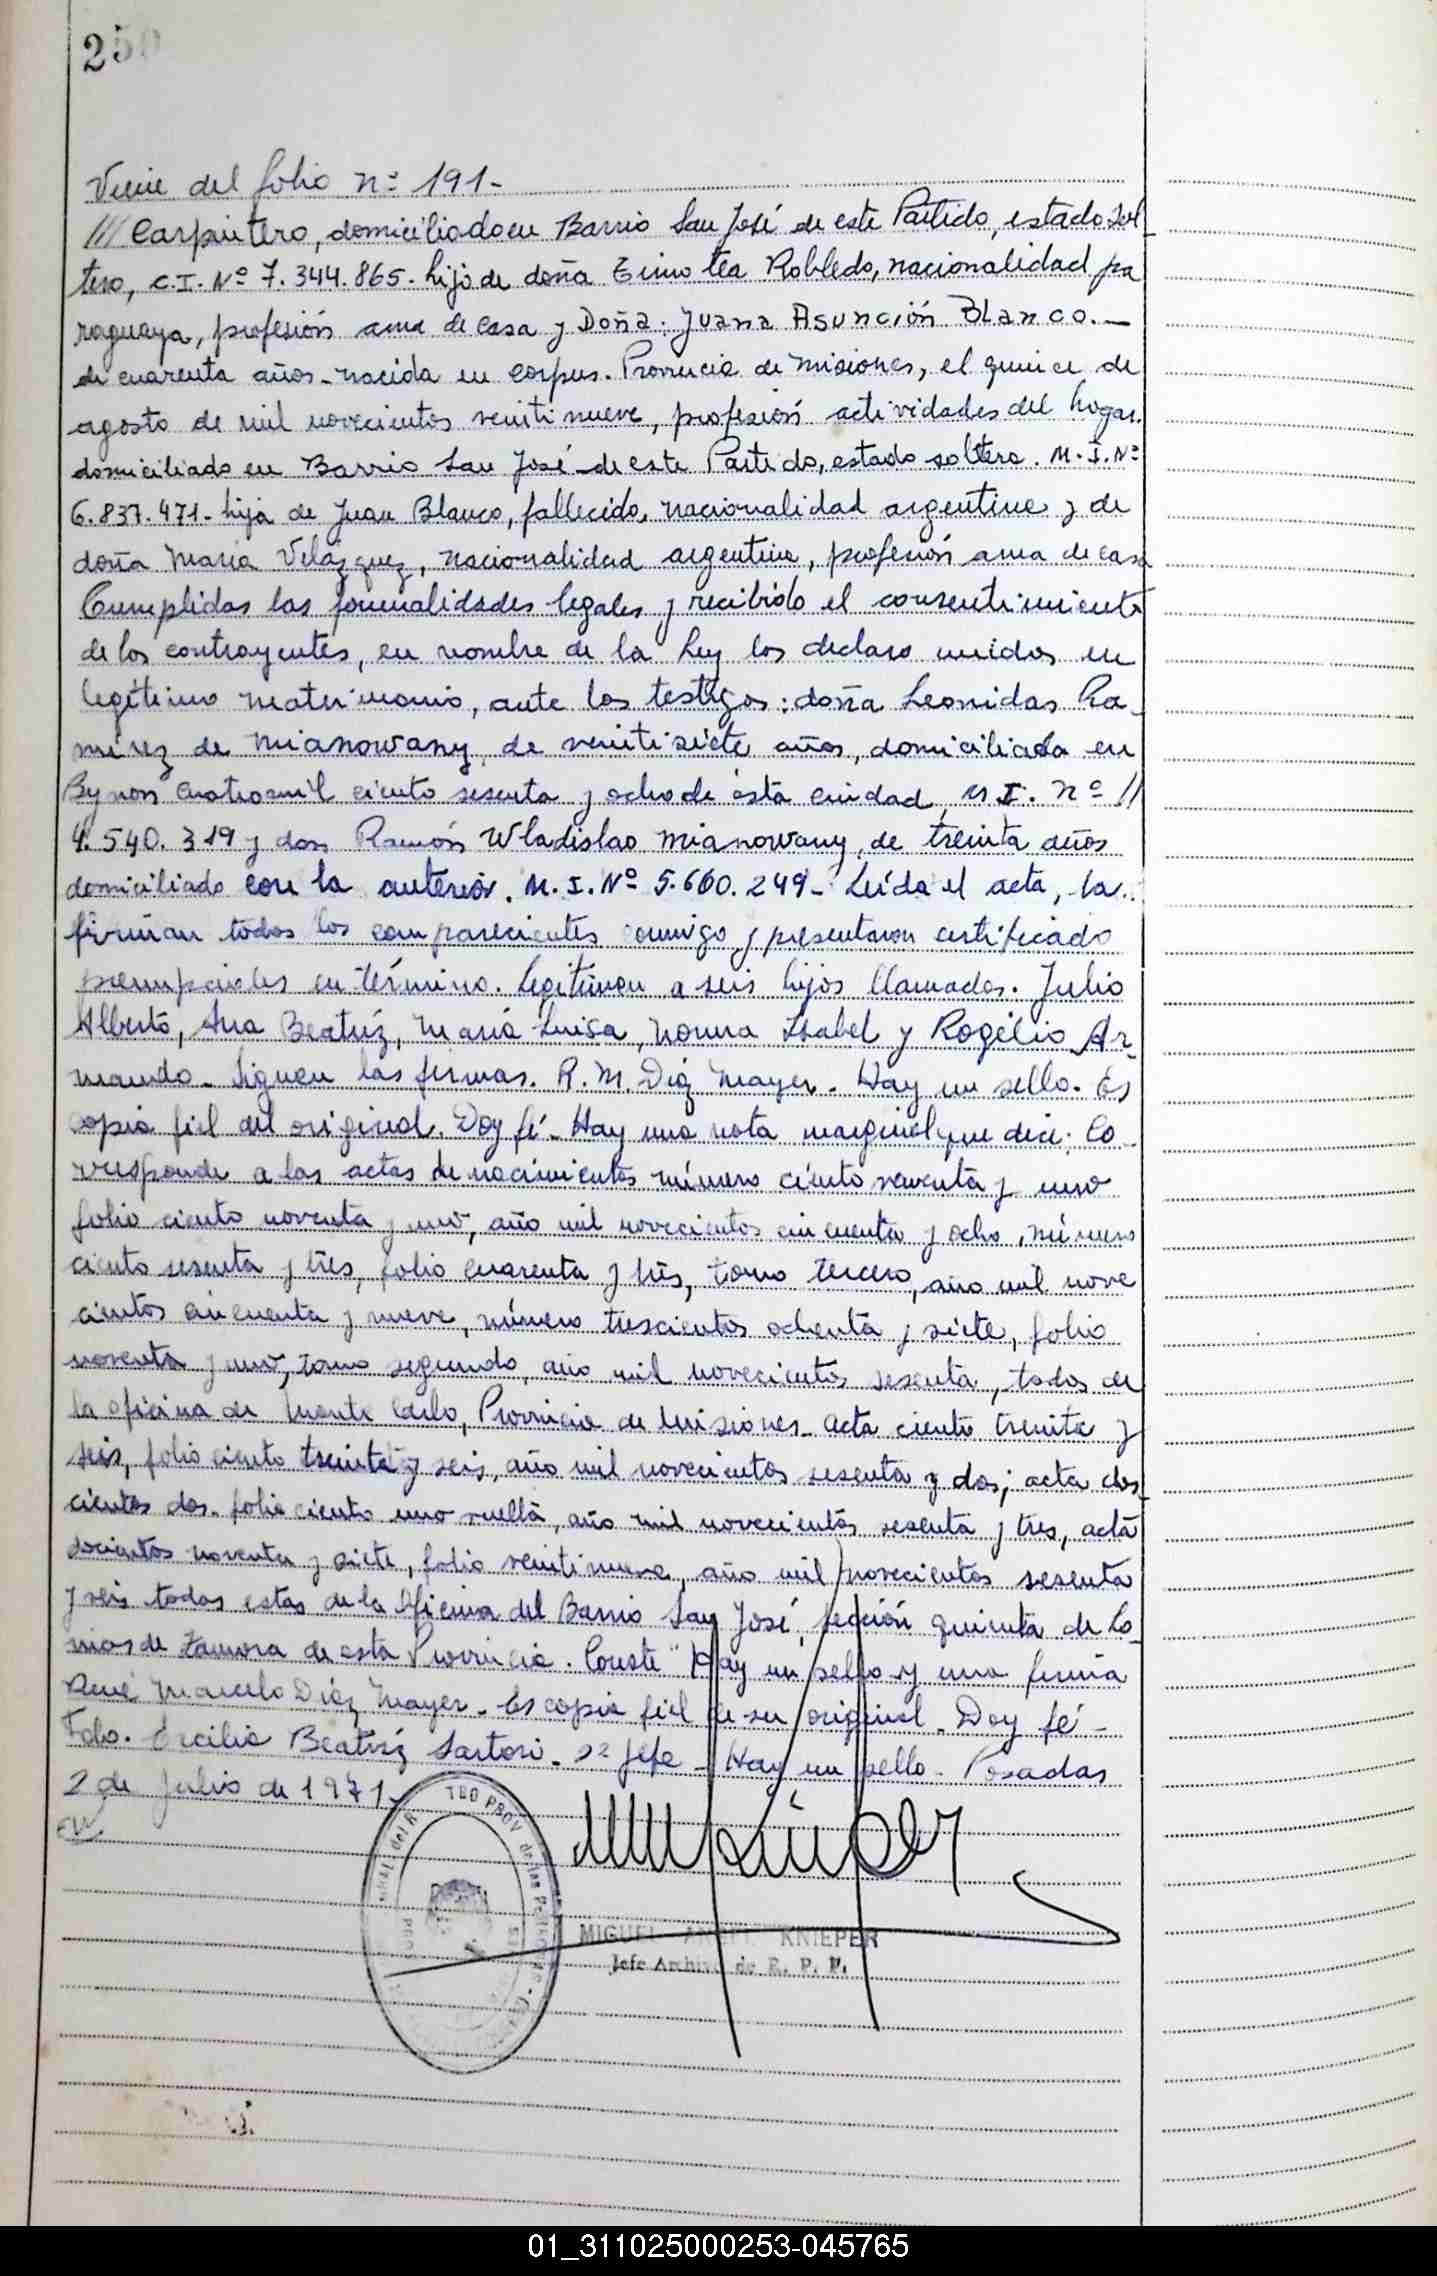 250
Viene del folio nº 191-
/// Carpintero, domiciliado en Barrio San José de este Partido, estado sol
tero, C.I. Nº 7.344.865. hijo de doña Timotea Robledo, nacionalidad pa
raguaya, profesión ama de casa y Doña: Juana Asunción Blanco.-
de cuarenta años - nacida en Corpus. Provincia de Misiones, el quince de
agosto de mil novecientos veintinueve, profesión actividades del hogar.
domiciliado en Barrio San José de este Partido, estado soltera. M.I. Nº
6.837.471- hija de Juan Blanco, fallecido, nacionalidad argentina y de
doña María Velázquez, nacionalidad argentina, profesión ama de casa
Cumplidas las formalidades legales y recibido el consentimiento
de los contrayentes, en nombre de la Ley los declaro unidos en
legítimo matrimonio, ante los testigos: doña Leonidas Ra-
mírez de Mianowany, de veintisiete años, domiciliada en
Bynon cuatro mil ciento sesenta y ocho de ésta ciudad, M.I. nº //
4.540.319 y don Ramón Wladislao Mianowany, de treinta años
domiciliado con la anterior. M.I. Nº 5.660.249- Leída el acta, la
firman todos los comparecientes conmigo y presentaron certificado
prenupciales en término. Legitiman a seis hijos llamados. Julio
Alberto, Ana Beatríz, María Luisa, Norma Isabel y Rogelio Ar-
mando - Siguen las firmas. R.M. Díaz Mayer - Hay un sello. Es
copia fiel del original. Doy fé - Hay una nota marginal que dice: Co-
rresponde a las actas de nacimientos número ciento noventa y uno
folio ciento noventa y uno, año mil novecientos cincuenta y ocho, número
ciento sesenta y tres, folio cuarenta y tres, tomo tercero, año mil nove
cientos cincuenta y nueve, número trescientos ochenta y siete, folio
noventa y uno, tomo segundo, año mil novecientos sesenta, todos de
la oficina de Monte Carlo, Provincia de Misiones - acta ciento treinta y
seis, folio ciento treinta y seis, año mil novecientos sesenta y dos; acta dos
cientos dos - folio ciento uno vuelta, año mil novecientos sesenta y tres, acta
doscientos noventa y siete, folio veintinueve, año mil novecientos sesenta
y seis todas estas de la Oficina del Barrio San José, sección quinta de Lo-
mas de Zamora de esta Provincia. Conste" Hay un sello y una firma
René Marcelo Díaz Mayer - Es copia fiel de su original - Doy fé -
Fdo. Cecilia Beatríz Sartori - 2º Jefe - Hay un sello - Posadas
2 de Julio de 1971 -
MIGUEL ANGEL KNIEPER
Jefe Archivo de R. P. P.
01_311025000253-045765